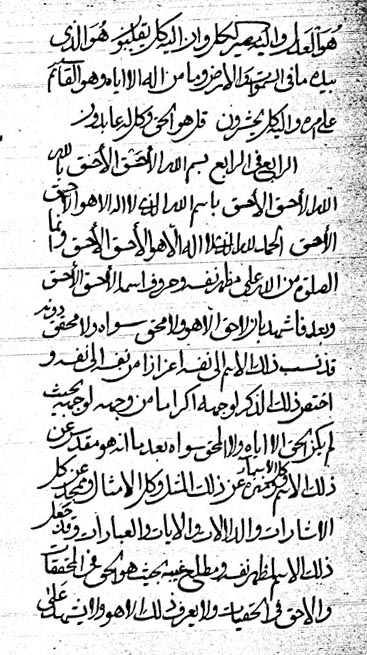 هو العلم واليه يصير كل وان اليه كل ينقلبون هو الذي
بيده ما فى السموات والارض وما من اله الا اياه وهو القائم
على مره واليه كل يحشرون قل هو الحق وكل له عابدون
الرابع فى الرابع بسم الله الأحقق الأحقق بالله
الله الأحق الأحق باسم الله الذى لا اله الا هو الأحق
الأحق الحمد لله الذى لا اله الا هو الأحق الأحق وانما
الصلوة من الله على مظهر نفسه وحروف اسما الأحق الأحق
وبعد فاشهد بان لا حق الا هو ولا محق سواه ولا محقق دونه
قد نسب ذلك الاسم الى نفسه اعزازا من نفسه الى نفسه و
اختص ذلك الذكر لوجهه اكراما من وجهه لوجهه بحيث
لم يكن الحق الا اياه ولا المحق سواه بعد ما انه هو مقدس عن
ذلك الاسم وكل الاسماء ومنزه عن ذلك المثل وكل الامثال ومتجد عن كل
الاشارات والدلالات والايات والعبارات وقد جعل
ذلك الاسم لمظهر نفسه ومطلع غيبه بحيث هو الحق فى المحققات
والاحق فى الحقيات ولا يعرف ذلك الا هو ولا يشهد على